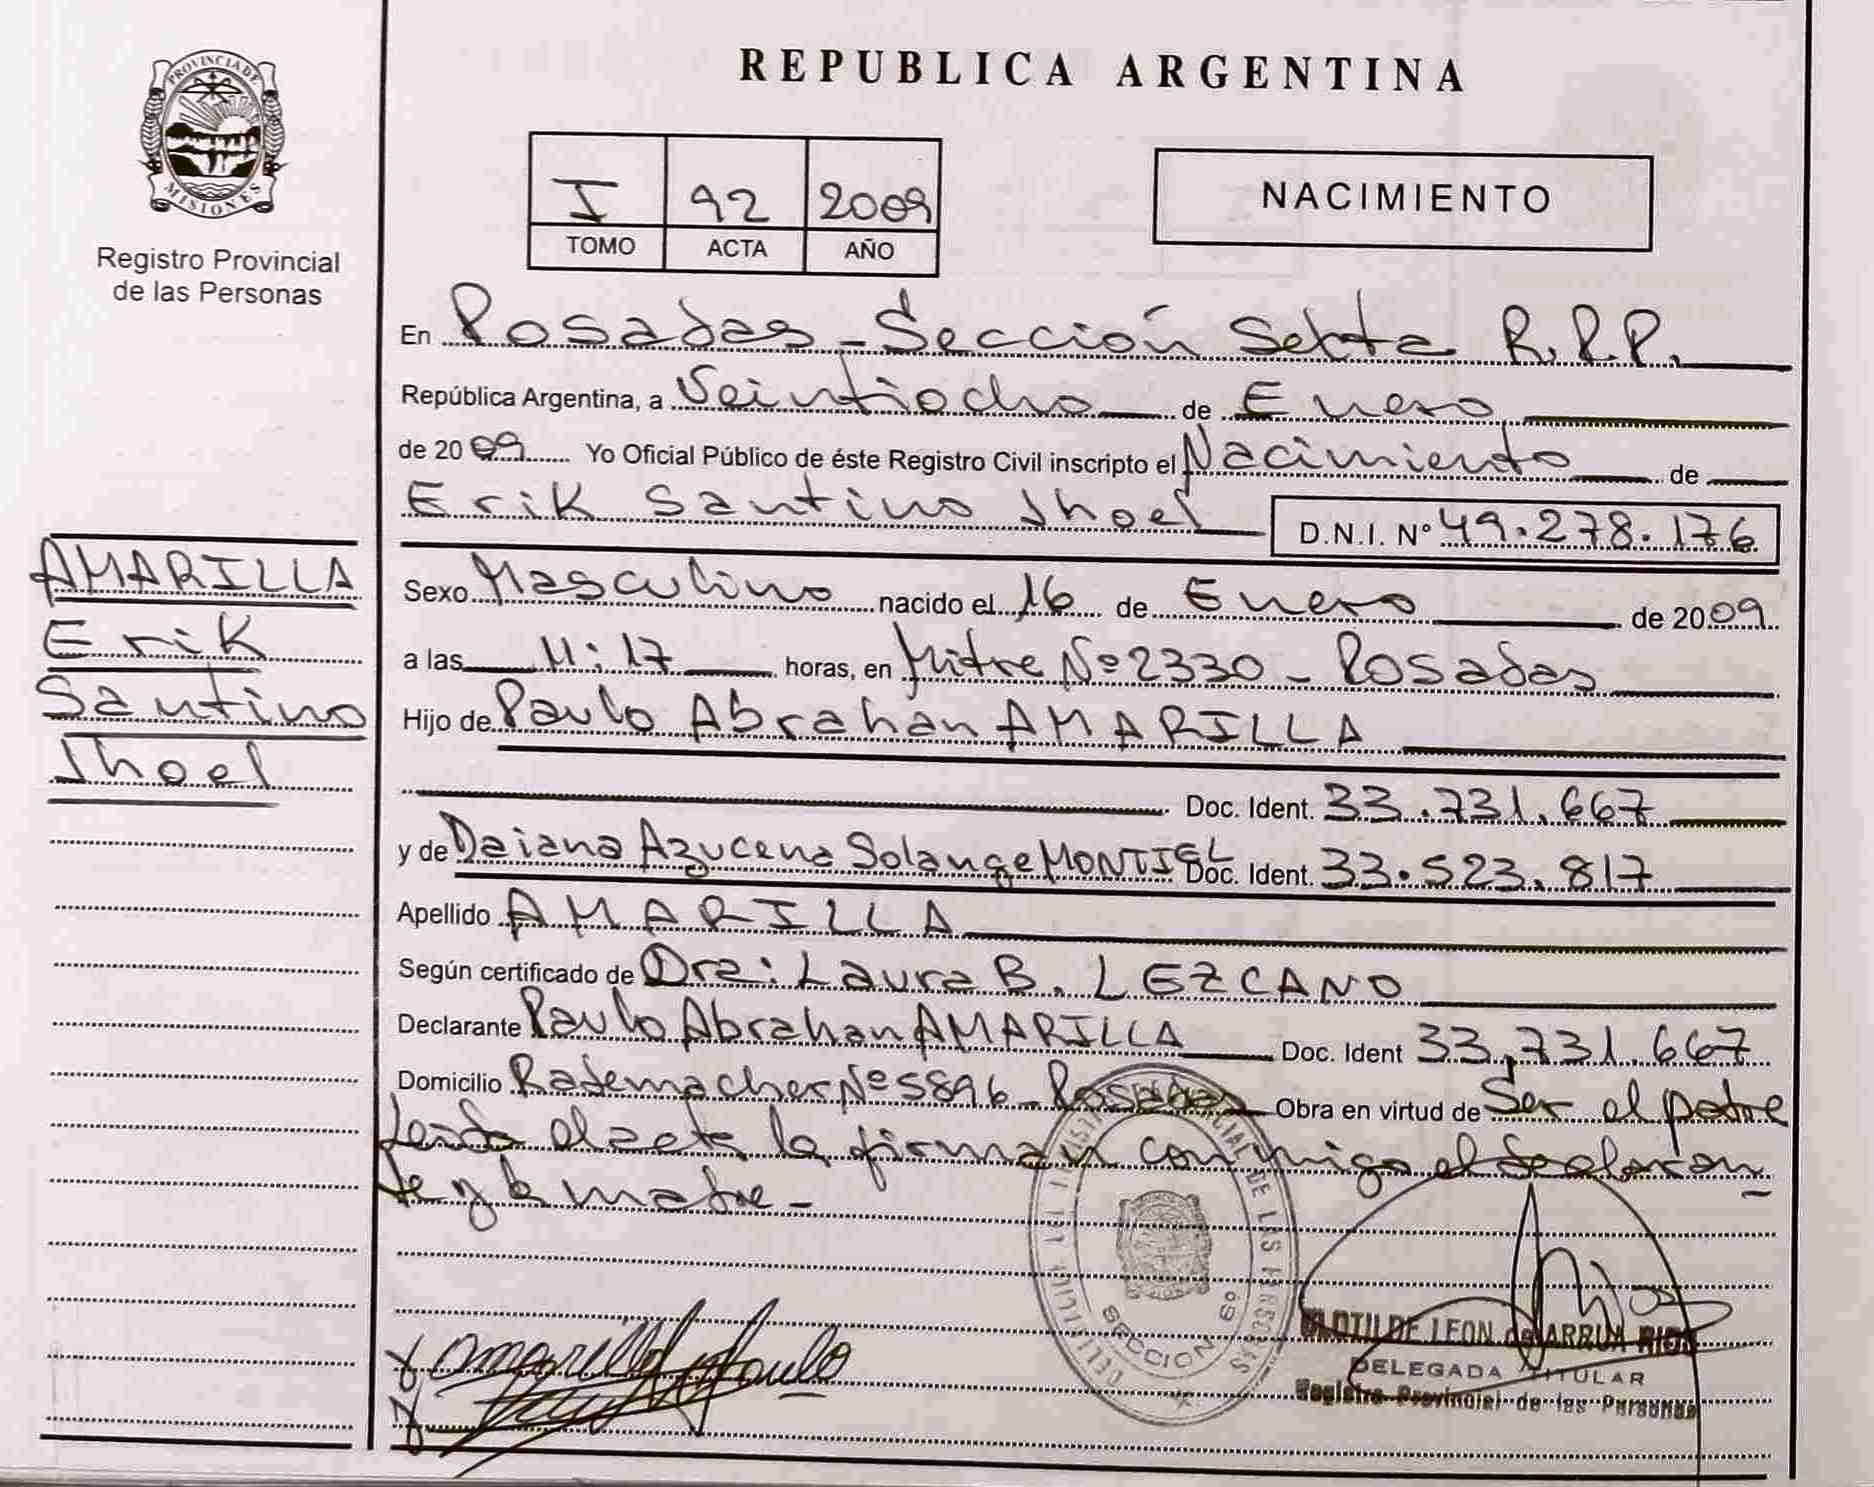 PROVINCIA DE
MISIONES
Registro Provincial
de las Personas
AMARILLA
Erik
Santino
Jhoel
REPUBLICA ARGENTINA
I 92 2009
TOMO ACTA AÑO
NACIMIENTO
En Posadas - Sección Sexta R.P.P.
República Argentina, a Veintiocho de Enero
de 2009 Yo Oficial Público de éste Registro Civil inscripto el Nacimiento de
Erik Santino Jhoel D.N.I. Nº 49.278.176
Sexo Masculino nacido el 16 de Enero de 2009
a las 11:17 horas, en Mitre Nº 2330 - Posadas
Hijo de Paulo Abrahan AMARILLA
Doc. Ident. 33.731.667
y de Daiana Azucena Solange MONTIEL Doc. Ident. 33.523.817
Apellido AMARILLA
Según certificado de Dra: Laura B. LEZCANO
Declarante Paulo Abrahan AMARILLA Doc. Ident 33.731.667
Domicilio Rademacher Nº 5896 - Posadas Obra en virtud de Ser el padre
Leída el acta la firman conmigo el declaran
te y la madre -
PROVINCIAL DE LAS PERSONAS
SECCION 6º
Amarilla Paulo
CLOTILDE LEON de ARRUA
DELEGADA TITULAR
Registro Provincial de las Personas